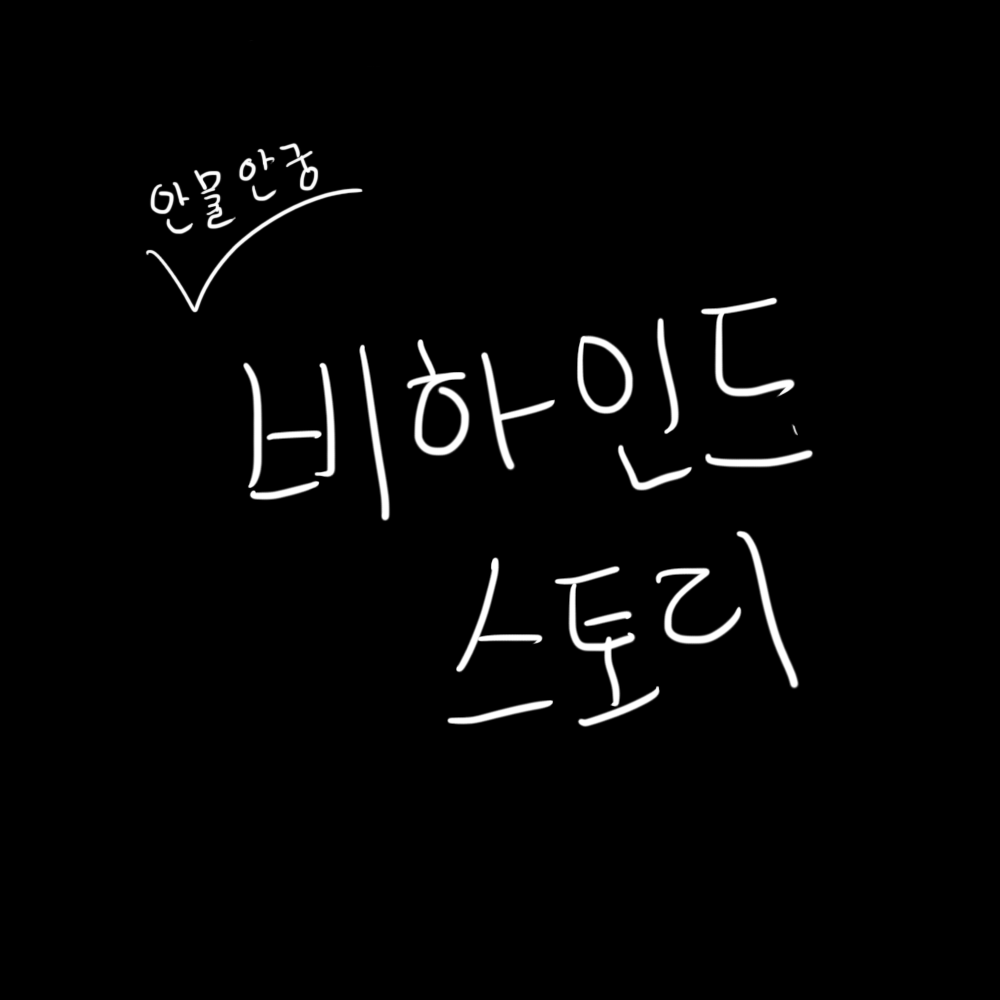 안물안궁
비하인드
스토리